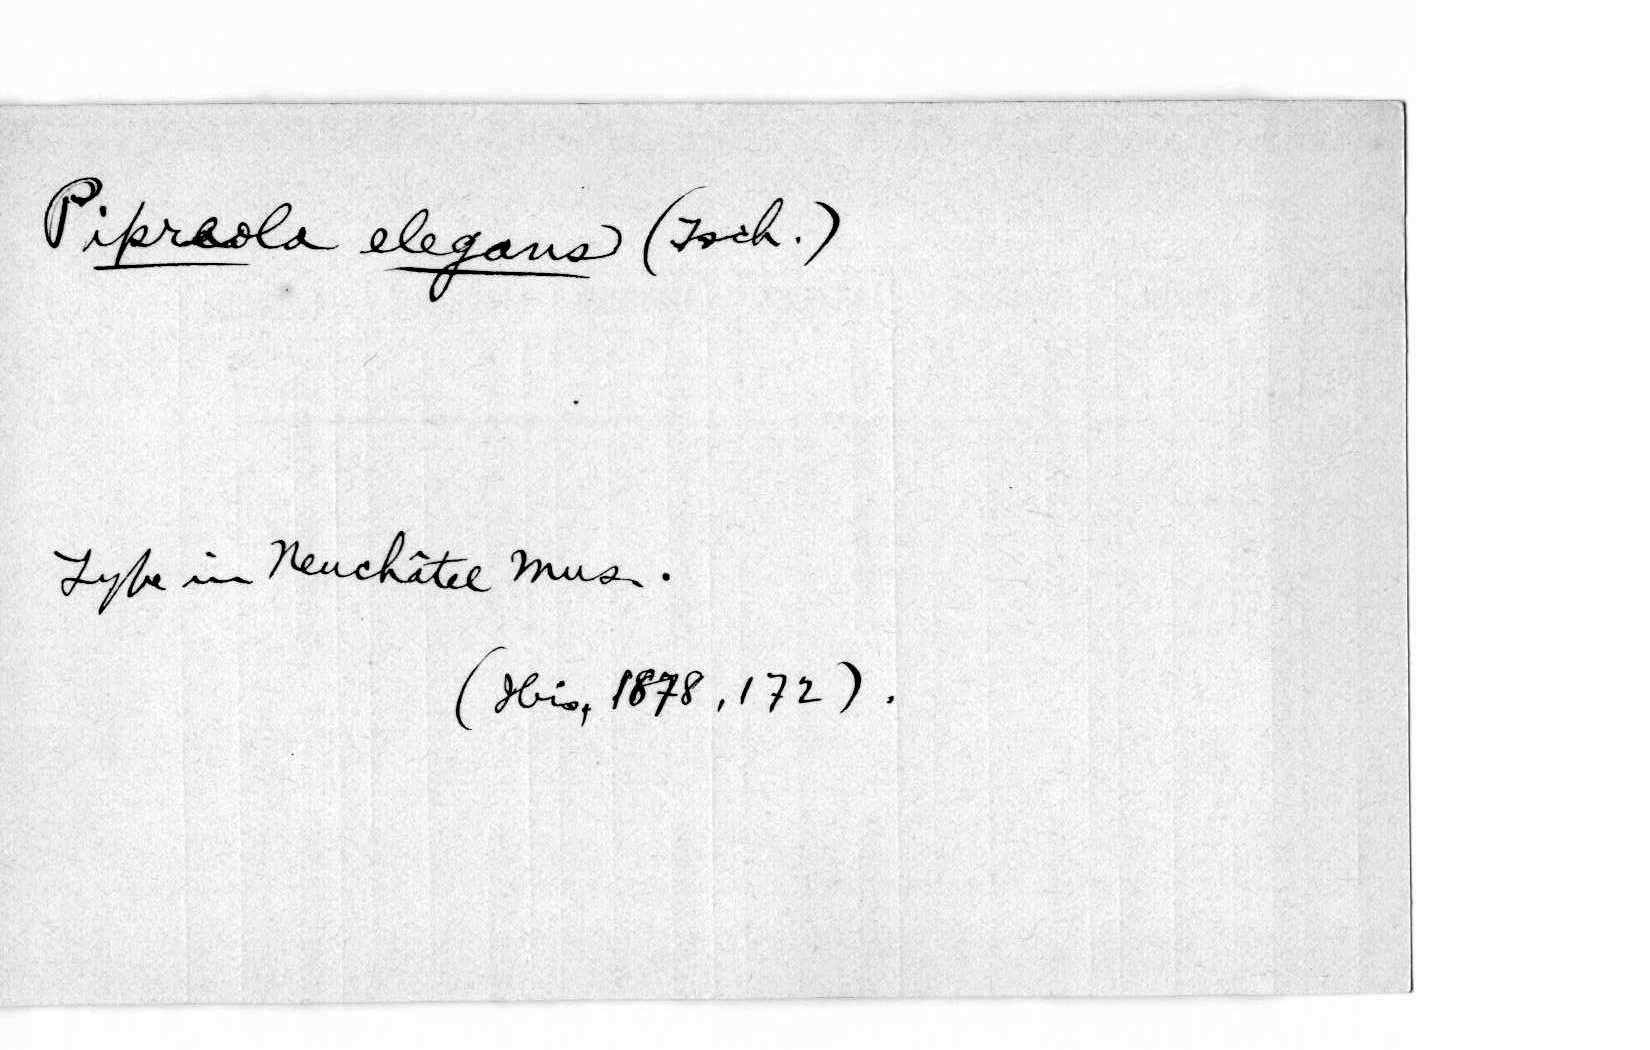 Pipreola elegans (Tsch.)
Type in Neuchâtel Mus.
(Ibis, 1878, 172).